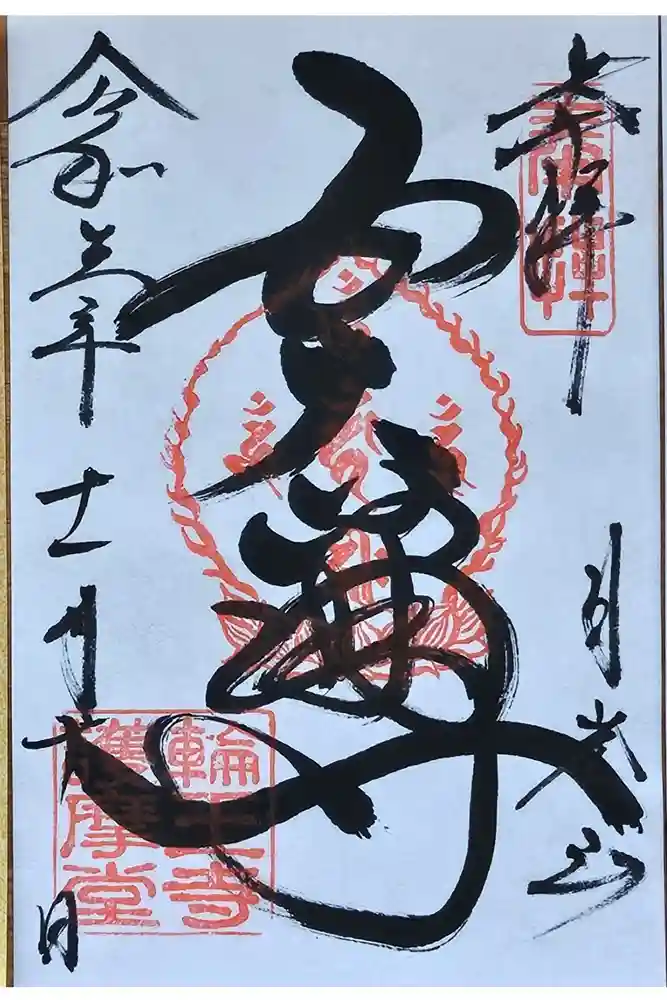 奉拝
日光山
五大尊
令和三年
十一月六日
輪王寺
護摩堂